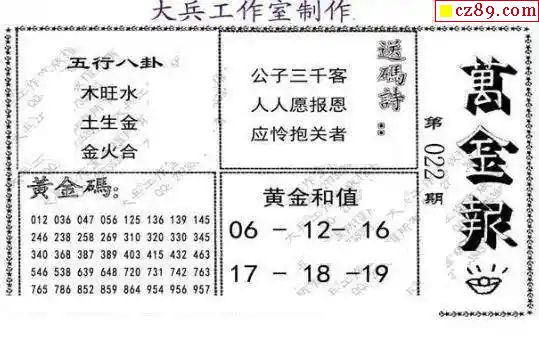 大兵工作室制作
cz89.com
五行八卦
木旺水
土生金
金火合
公子三千客
人人愿报恩
应怜抱关者
送碼詩：
第022期
萬金報
黃金碼：
012 036 047 056 125 136 139 145
246 238 258 269 310 320 330 345
340 368 387 389 403 415 432 463
546 538 639 648 720 731 742 763
765 786 852 859 864 954 956 957
黄金和值
06 - 12- 16
17 - 18 -19